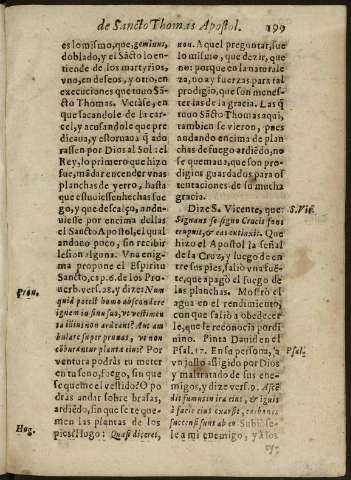 de Sancto Thomas Apostol. 199
es lo mismo, que, geminus,
doblado, y el Sãcto lo en-
tiende de los martyrios,
vno, en deseos, y otro, en
execuciones que tuuo Sã-
cto Thomas. Verase, en
que sacandole de la car-
cel, y acusandole que pre
dicaua, y estoruaua q̃ ado
rassen por Dios al Sol: el
Rey, lo primero que hizo
fue, mãdar encender vnas
planchas de yerro, hasta
que estuuiessen hechas fue
go, y que descalço, andu-
uiesse por encima dellas
el Sancto Apostol, el qual
anduuo poco, sin recibir
lesion alguna. Vna enig-
ma propone el Espiritu
Sancto, cap. 6. de los Pro-
Prou.
uerb. vers. 28. y dize: Nun
quid potest homo abscondere
ignem in sinu suo, vt vestimen
ta illius non ardeant? Aut am
bulare super prunas, vt non
cõburantur plantæ eius? Por
ventura podràs tu meter
en tu seno, fuego, sin que
se queme el vestido? O po
dràs andar sobre brasas,
ardiẽdo, sin que se te que-
men las plantas de los
Hug.
pies? Hugo: Quasi diceret,
non. A quel preguntar, fue
lo mismo, que dezir, que
no: porque en la naturale
za, no ay fuerzas para tal
prodigio, que son menes-
ter las de la gracia. Las q̃
tuuo Sãcto Thomas aqui,
tambien se vieron, pues
andando encima de plan
chas de fuego ardiẽdo, no
se quemaua, que son pro-
digios guardados para os
tentaciones de su mucha
gracia.
Dize S. Vicente, que:
S. Vic.
Signans se signo Crucis fons
erupuit, & eas extinxit. Que
hizo el Apostol la señal
de la Cruz, y luego de en
tre sus pies, saliò vna fuẽ-
te, que apagò el fuego de
las planchas. Mostrò el
agua en el rendimiento,
con que saliò a obedecer
le, que le reconocia por di
nino. Pinta Dauid en el
Psal. 17. En su persona, a
Psal.
vn justo afligido por Dios
y maltratado de sus ene-
migos, y dize vers. 9. Ascẽ
dit fumus in ira eius, & ignis
à facie eius exarsit, carbones
succensi sunt ab eo Subiòse-
le a mi enemigo, y a los